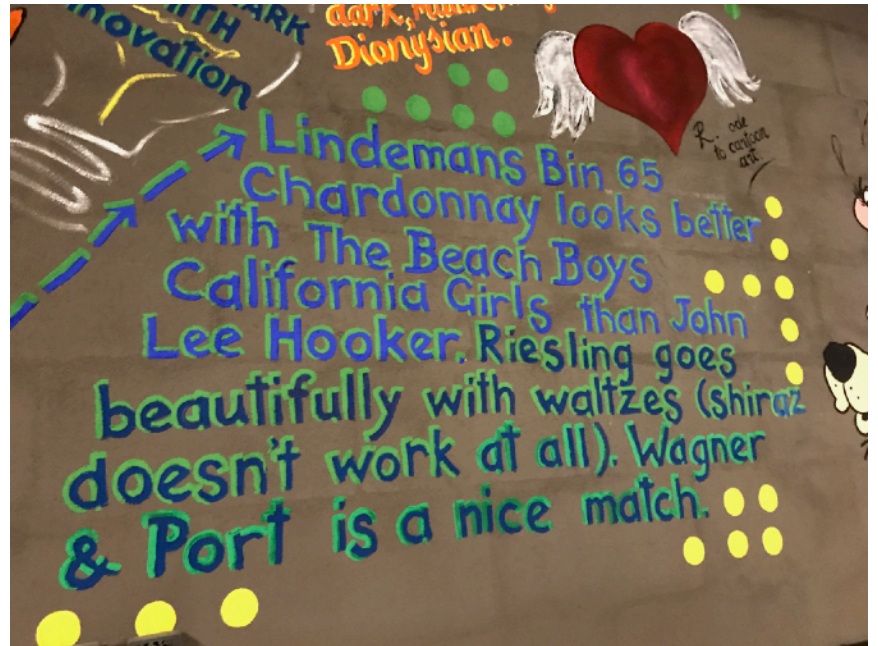 ARK
nnovation
dark,
Dionysian.
R. ode
to cartoon
art.
Lindemans Bin 65
Chardonnay looks better
with The Beach Boys
California Girls than John
Lee Hooker. Riesling goes
beautifully with waltzes (shiraz
doesn't work at all). Wagner
& Port is a nice match.